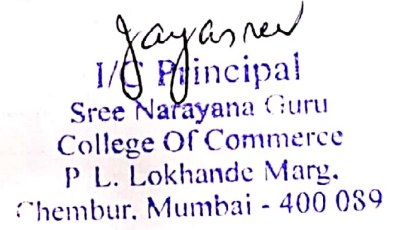 Jayasree
I/C Principal
Sree Narayana Guru
College Of Commerce
P L. Lokhande Marg.
Chembur. Mumbai - 400 089